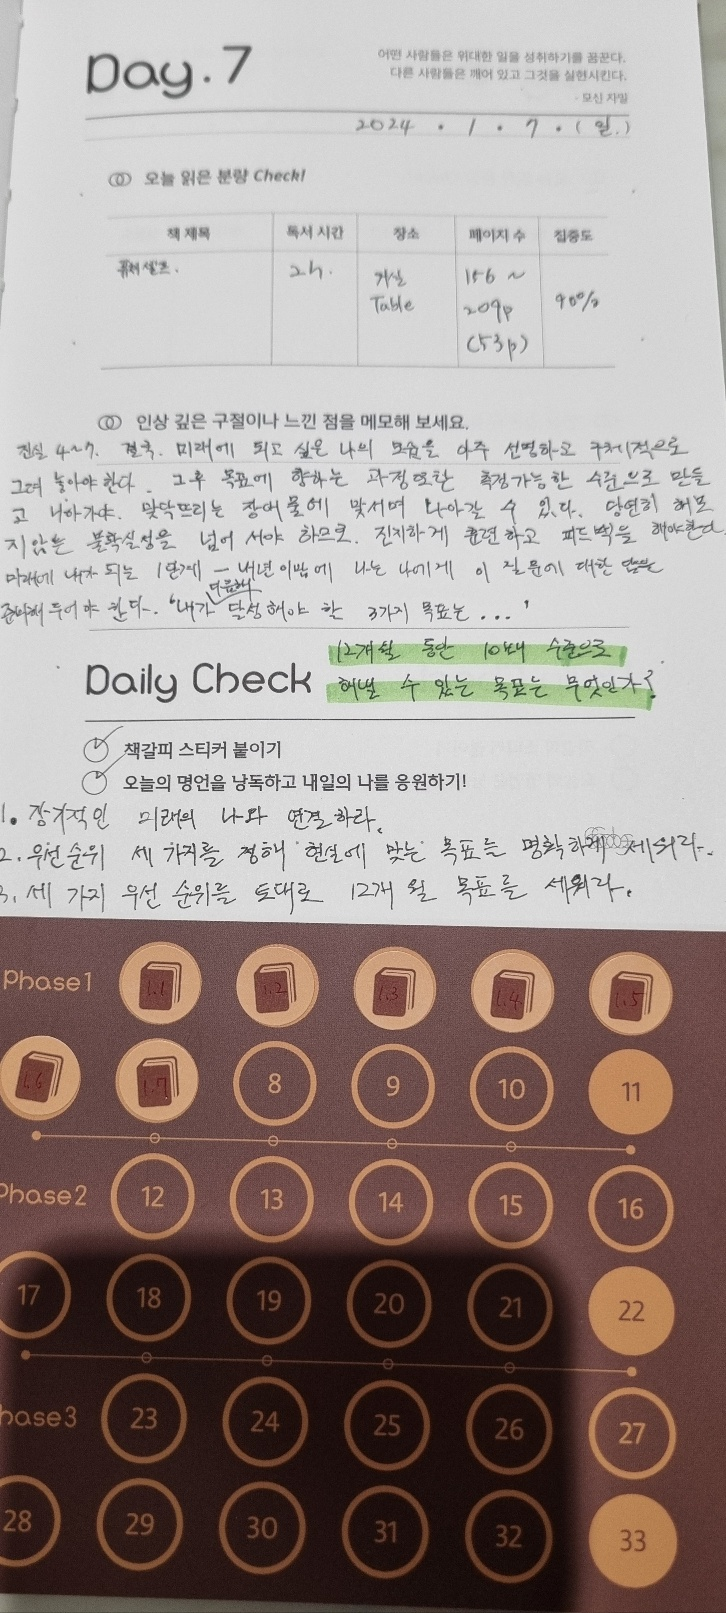 Day. 7
어떤 사람들은 위대한 일을 성취하기를 꿈꾼다.
다른 사람들은 깨어 있고 그것을 실현시킨다.
- 모신 자밀
2024 . 1 . 7 . (일.)
오늘 읽은 분량 Check!
책 제목 독서 시간 장소 페이지 수 집중도
퓨처셀프. 2h. 거실 156 ~ 90%
Table 209p
(53p)
인상 깊은 구절이나 느낀 점을 메모해 보세요.
진실 4~7. 결국. 미래에 되고 싶은 나의 모습을 아주 선명하고 구체적으로
그려 놓아야 한다. 그 후 목표에 향하는 과정 또한 측정가능한 수준으로 만들
고 나아가야. 맞닥뜨리는 장애물에 맞서며 나아갈 수 있다. 당연히
지않는 불확실성을 넘어 서야 하므로. 진지하게 훈련하고 피드백을 해야한다.
미래에 내가 되는 1단계 - 내년 이맘에 나는 나에게 이 질문에 대한 답을
다음해
준비해 두어야 한다. '내가 달성해야 할 3가지 목표는 ... '
12개월 동안 10배 수준으로
Daily Check 해낼 수 있는 목표는 무엇인가?
책갈피 스티커 붙이기
오늘의 명언을 낭독하고 내일의 나를 응원하기!
1. 장기적인 미래의 나와 연결하라.
2. 우선순위 세 가지를 정해 현실에 맞는 목표를 명확하게 세워라.
3. 세 가지 우선 순위를 토대로 12개 월 목표를 세워라.
Phase1 1.1 1.2 1.3 1.4 1.5
1.6 1.7 8 9 10 11
Phase2 12 13 14 15 16
17 18 19 20 21 22
hase3 23 24 25 26 27
28 29 30 31 32 33